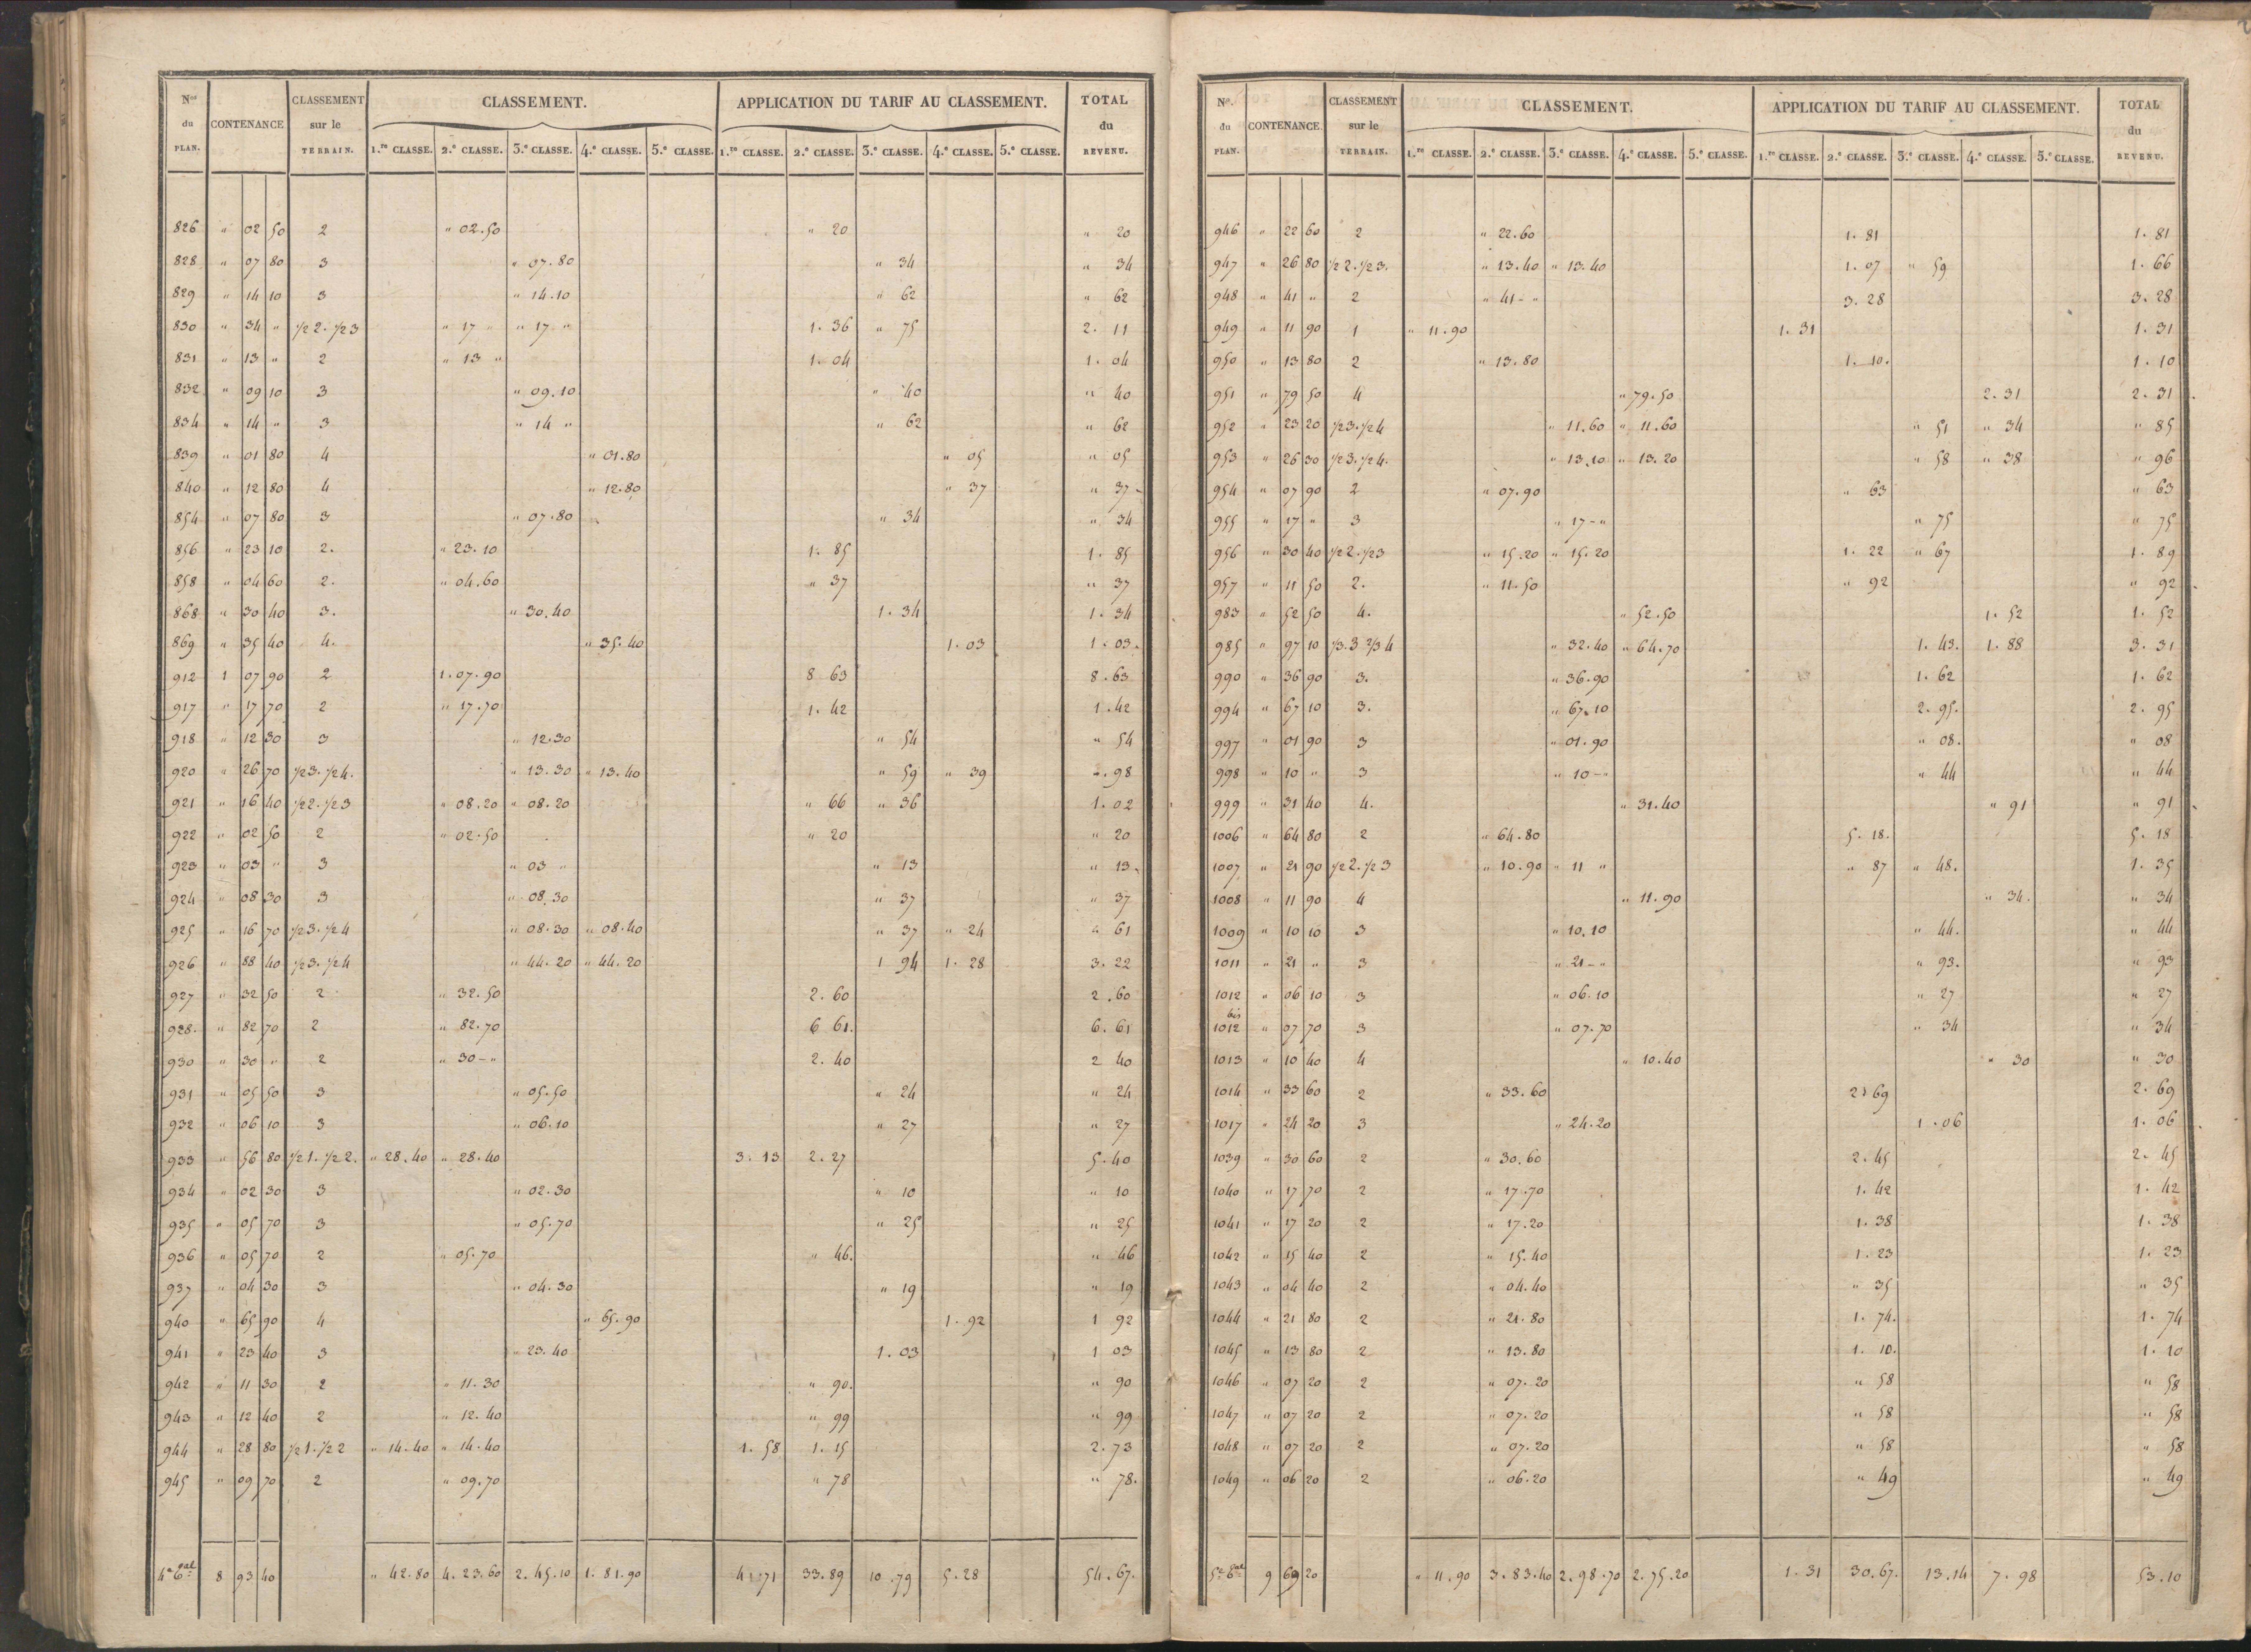 Nos du PLAN. CONTENANCE CLASSEMENT sur le TERRAIN. CLASSEMENT. APPLICATION DU TARIF AU CLASSEMENT. TOTAL du REVENU.
1.re CLASSE. 2.e CLASSE. 3.e CLASSE. 4.e CLASSE. 5.e CLASSE. 1.re CLASSE. 2.e CLASSE. 3.e CLASSE. 4.e CLASSE. 5.e CLASSE.
826 " 02 50 2 " 02.50 " 20 " 20
828 " 07 80 3 " 07.80 " 34 " 34
829 " 14 10 3 " 14.10 " 62 " 62
830 " 34 " 1/2 2. 1/2 3 " 17 " " 17 " 1. 36 " 75 2. 11
831 " 13 " 2 " 13 " 1. 04 1. 04
832 " 09 10 3 " 09.10 " 40 " 40
834 " 14 " 3 " 14 " " 62 " 62
839 " 01 80 4 " 01.80 " 05 " 05
840 " 12 80 4 " 12.80 " 37 " 37
854 " 07 80 3 " 07.80 " 34 " 34
856 " 23 10 2. " 23.10 1. 85 1. 85
858 " 04 60 2. " 04.60 " 37 " 37
868 " 30 40 3. " 30.40 1. 34 1. 34
869 " 35 40 4. " 35.40 1. 03 1. 03.
912 1 07 90 2 1.07.90 8 63 8.63
917 " 17 70 2 " 17.70 1. 42 1.42
918 " 12 30 3 " 12.30 " 54 " 54
920 " 26 70 1/2 3. 1/2 4. " 13.30 " 13.40 " 59 " 39 ". 98
921 " 16 40 1/2 2. 1/2 3 " 08.20 " 08.20 " 66 " 36 1. 02
922 " 02 50 2 " 02.50 " 20 " 20
923 " 03 " 3 " 03 " " 13 " 13
924 " 08 30 3 " 08.30 " 37 " 37
925 " 16 70 1/2 3. 1/2 4 " 08.30 " 08.40 " 37 " 24 " 61
926 " 88 40 1/2 3. 1/2 4 " 44.20 " 44.20 1 94 1. 28 3. 22
927 " 32 50 2 " 32.50 2. 60 2.60
928. " 82 70 2 " 82.70 6 61. 6. 61
930 " 30 " 2 " 30 - " 2. 40 2 40
931 " 05 50 3 " 05.50 " 24 " 24
932 " 06 10 3 " 06.10 " 27 " 27
933 " 56 80 1/2 1. 1/2 2. " 28.40 " 28.40 3. 13 2. 27 5.40
934 " 02 30 3 " 02.30 " 10 " 10
935 " 05 70 3 " 05.70 " 25 " 25
936 " 05 70 2 " 05.70 " 46. " 46
937 " 04 30 3 " 04.30 " 19 " 19
940 " 65 90 4 " 65.90 1. 92 1 92
941 " 23 40 3 " 23.40 1. 03 1 03
942 " 11 30 2 " 11.30 " 90. " 90
943 " 12 40 2 " 12.40 " 99 " 99
944 " 28 80 1/2 1. 1/2 2 " 14.40 " 14.40 1. 58 1. 15 2.73
945 " 09 70 2 " 09.70 " 78 " 78.
8 93 40 " 42.80 4.23.60 2.45.10 1.81.90 4 71 33.89 10.79 5.28 54.67.
Nos. du PLAN. CONTENANCE. CLASSEMENT sur le TERRAIN. CLASSEMENT. APPLICATION DU TARIF AU CLASSEMENT. TOTAL du REVENU.
1.re CLASSE. 2.e CLASSE. 3.e CLASSE. 4.e CLASSE. 5.e CLASSE. 1.re CLASSE. 2.e CLASSE. 3.e CLASSE. 4.e CLASSE. 5.e CLASSE.
946 " 22 60 2 " 22.60 1. 81 1. 81
947 " 26 80 1/2 2. 1/2 3. " 13.40 " 13.40 1. 07 " 59 1. 66
948 " 41 " 2 " 41 - " 3. 28 3. 28
949 " 11 90 1 " 11.90 1. 31 1. 31
950 " 13 80 2 " 13.80 1. 10. 1. 10
951 " 79 50 4 " 79.50 2. 31 2. 31
952 " 23 20 1/2 3. 1/2 4 " 11.60 " 11.60 " 51 " 34 " 85
953 " 26 30 1/2 3. 1/2 4. " 13.10 " 13.20 " 58 " 38 " 96
954 " 07 90 2 " 07.90 " 63 " 63
955 " 17 " 3 " 17 - " " 75 " 75
956 " 30 40 1/2 2. 1/2 3 " 15.20 " 15.20 1. 22 " 67 1. 89
957 " 11 50 2. " 11.50 " 92 " 92
983 " 52 50 4. " 52.50 1. 52 1. 52
985 " 97 10 1/3. 3 2/3 4 " 32.40 " 64.70 1. 43. 1. 88 3. 31
990 " 36 90 3. " 36.90 1. 62 1. 62
994 " 67 10 3. " 67.10 2. 95. 2. 95
997 " 01 90 3 " 01.90 " 08. " 08
998 " 10 " 3 " 10 - " " 44 " 44
999 " 31 40 4. " 31.40 " 91 " 91
1006 " 64 80 2 " 64.80 5. 18. 5. 18
1007 " 21 90 1/2 2. 1/2 3 " 10.90 " 11 " " 87 " 48. 1. 35
1008 " 11 90 4 " 11.90 " 34. " 34
1009 " 10 10 3 " 10.10 " 44. " 44
1011 " 21 " 3 " 21 - " " 93. " 93
1012 " 06 10 3 " 06.10 " 27 " 27
1012 bis " 07 70 3 " 07.70 " 34 " 34
1013 " 10 40 4 " 10.40 " 30 " 30
1014 " 33 60 2 " 33.60 2 69 2. 69
1017 " 24 20 3 " 24.20 1. 06 1. 06
1039 " 30 60 2 " 30.60 2. 45 2. 45
1040 " 17 70 2 " 17.70 1. 42 1. 42
1041 " 17 20 2 " 17.20 1. 38 1. 38
1042 " 15 40 2 " 15.40 1. 23 1. 23
1043 " 04 40 2 " 04.40 " 35 " 35
1044 " 21 80 2 " 21.80 1. 74. 1. 74
1045 " 13 80 2 " 13.80 1. 10. 1. 10
1046 " 07 20 2 " 07.20 " 58 " 58
1047 " 07 20 2 " 07.20 " 58 " 58
1048 " 07 20 2 " 07.20 " 58 " 58
1049 " 06 20 2 " 06.20 " 49 " 49
9 69 20 " 11.90 3.83.40 2.98.70 2.75.20 1. 31 30.67. 13.14 7. 98 53.10